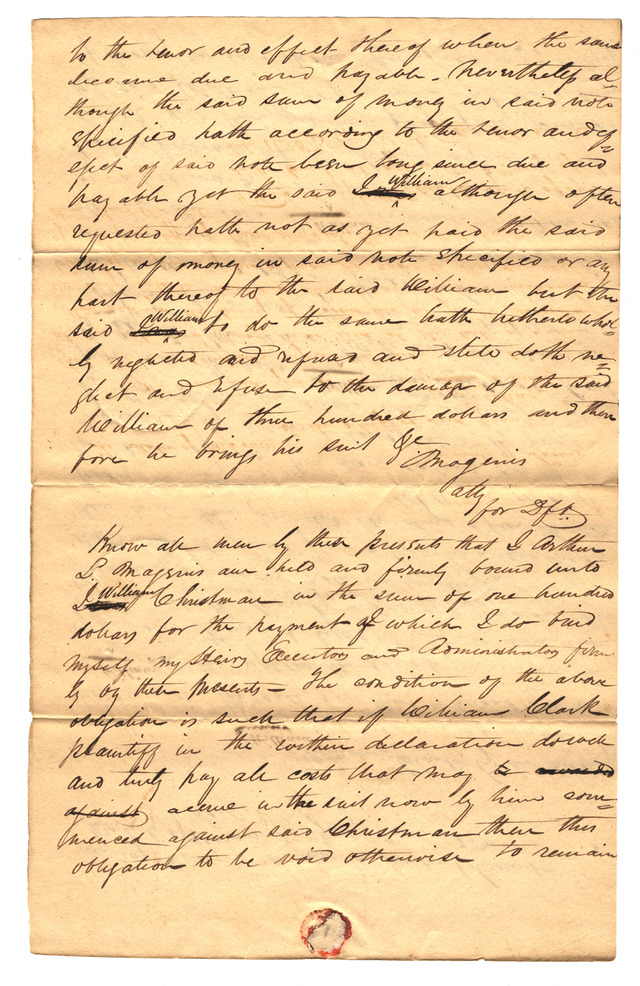 to the tenor and effect thereof when the same
became due and payable. Nevertheless al=
though the said sum of money in said note
specified hath according to the tenor and ef=
fect of said note been long since due and
payable yet the said William although often
requested hath not as yet paid the said
sum of money in said note specified or any
part thereof to the said William but the
said William to do the same hath hitherto whol=
ly neglected and refused and still doth ne=
glect and refuse to the damage of the said
William of three hundred dollars and there
fore he brings his suit &c
Magenis
atty
for Dft.
Know all men by these presents that I Arthur
L. Magenis am held and firmly bound unto
William Christman in the sum of one hundred
dollars for the payment of which I do bind
myself my Heirs Executors and Administrators firm
ly by these presents - The condition of the above
obligation is such that if William Clark
plaintiff in the within declaration do well
and truly pay all costs that may be awarded
against accrue in the suit now by him com=
menced against said Christman then this
obligation to be void otherwise to remain